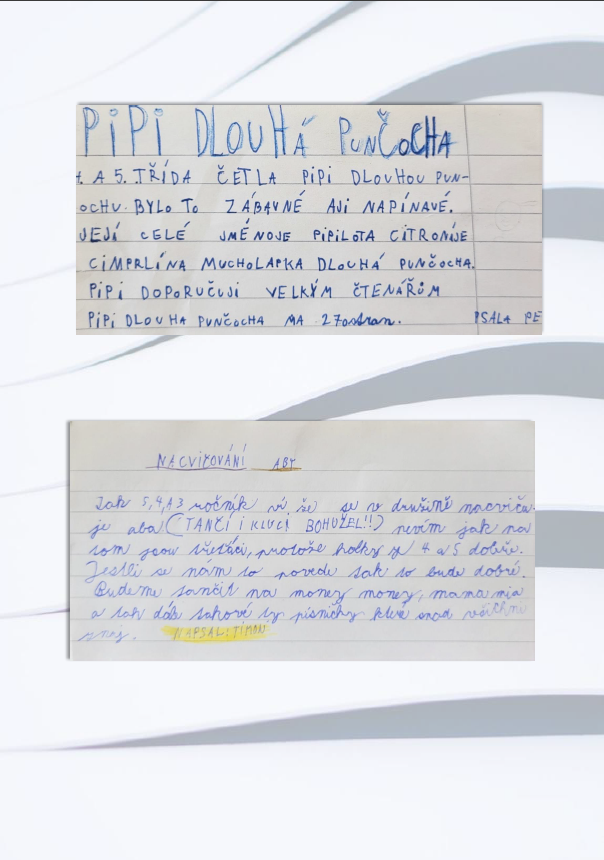 PIPI DLOUHÁ PUNČOCHA
4. A 5. TŘÍDA ČETLA PIPI DLOUHOU PUN-
OCHU. BYLO TO ZÁBAVNÉ AJI NAPÍNAVÉ.
JEJÍ CELÉ JMÉNOJE PIPILOTA CITRONIJE
CIMPRLÍNA MUCHOLAPKA DLOUHÁ PUNČOCHA.
PIPI DOPORUČUJI VELKÝM ČTENÁŘŮM
PIPI DLOUHA PUNČOCHA MA 270stran.
PSALA PE
NACVIČOVÁNÍ ABY
Jak 5,4,A 3 ročník ví že se v družině nacviču-
je aba (TANČÍ I KLUCI BOHUŽEL!!) nevím jak na
tom jsou třeťáci, protože holky z 4 a 5 dobře.
Jestli se nám to povede tak to bude dobré.
Budeme tančit na money money, mama mia
a tak dále takové ty písničky které snad všichni
znej.
NAPSAL: TIMON